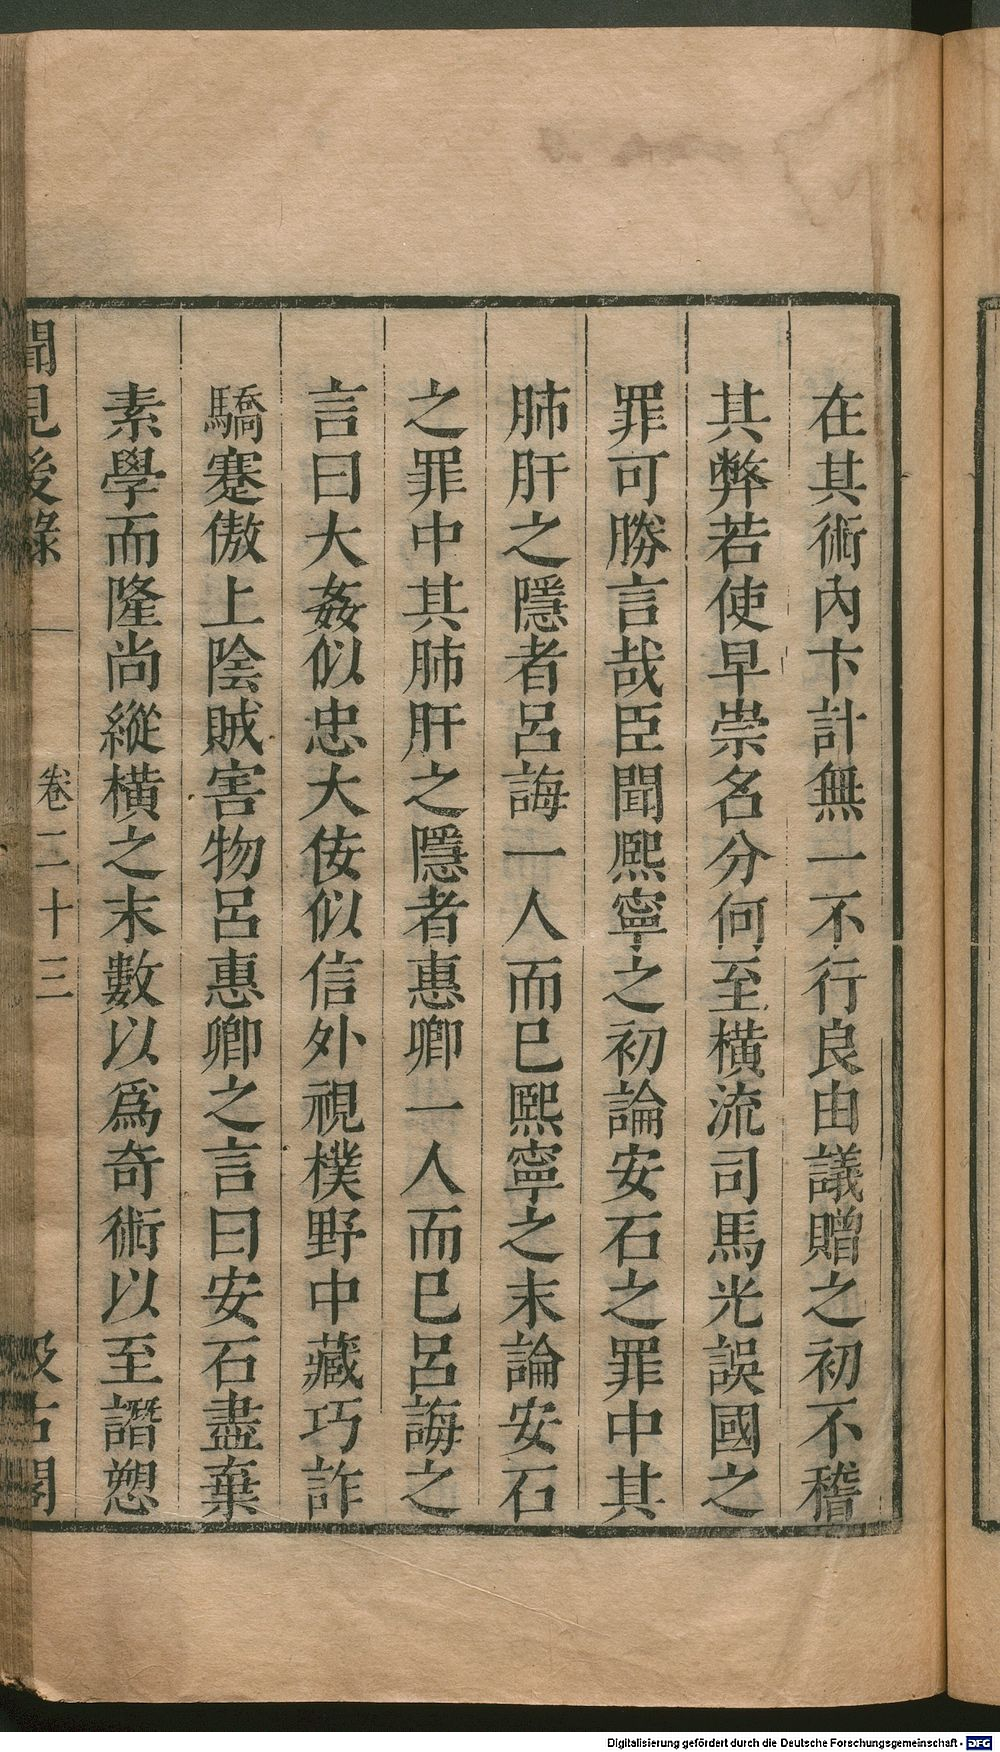 在其術內卞計無一不行良由議贈之初不稽
其弊若使早崇名分何至橫流司馬光誤國之
罪可勝言哉臣聞熙寧之初論安石之罪中其
肺肝之隱者呂誨一人而已熙寧之末論安石
之罪中其肺肝之隱者惠卿一人而已呂誨之
言曰大姦似忠大佞似信外視樸野中藏巧詐
驕蹇傲上陰賊害物呂惠卿之言曰安石盡棄
素學而隆尚縱橫之末數以爲奇術以至譖愬
聞見後錄 卷二十三 汲古閣
Digitalisierung gefördert durch die Deutsche Forschungsgemeinschaft - DFG